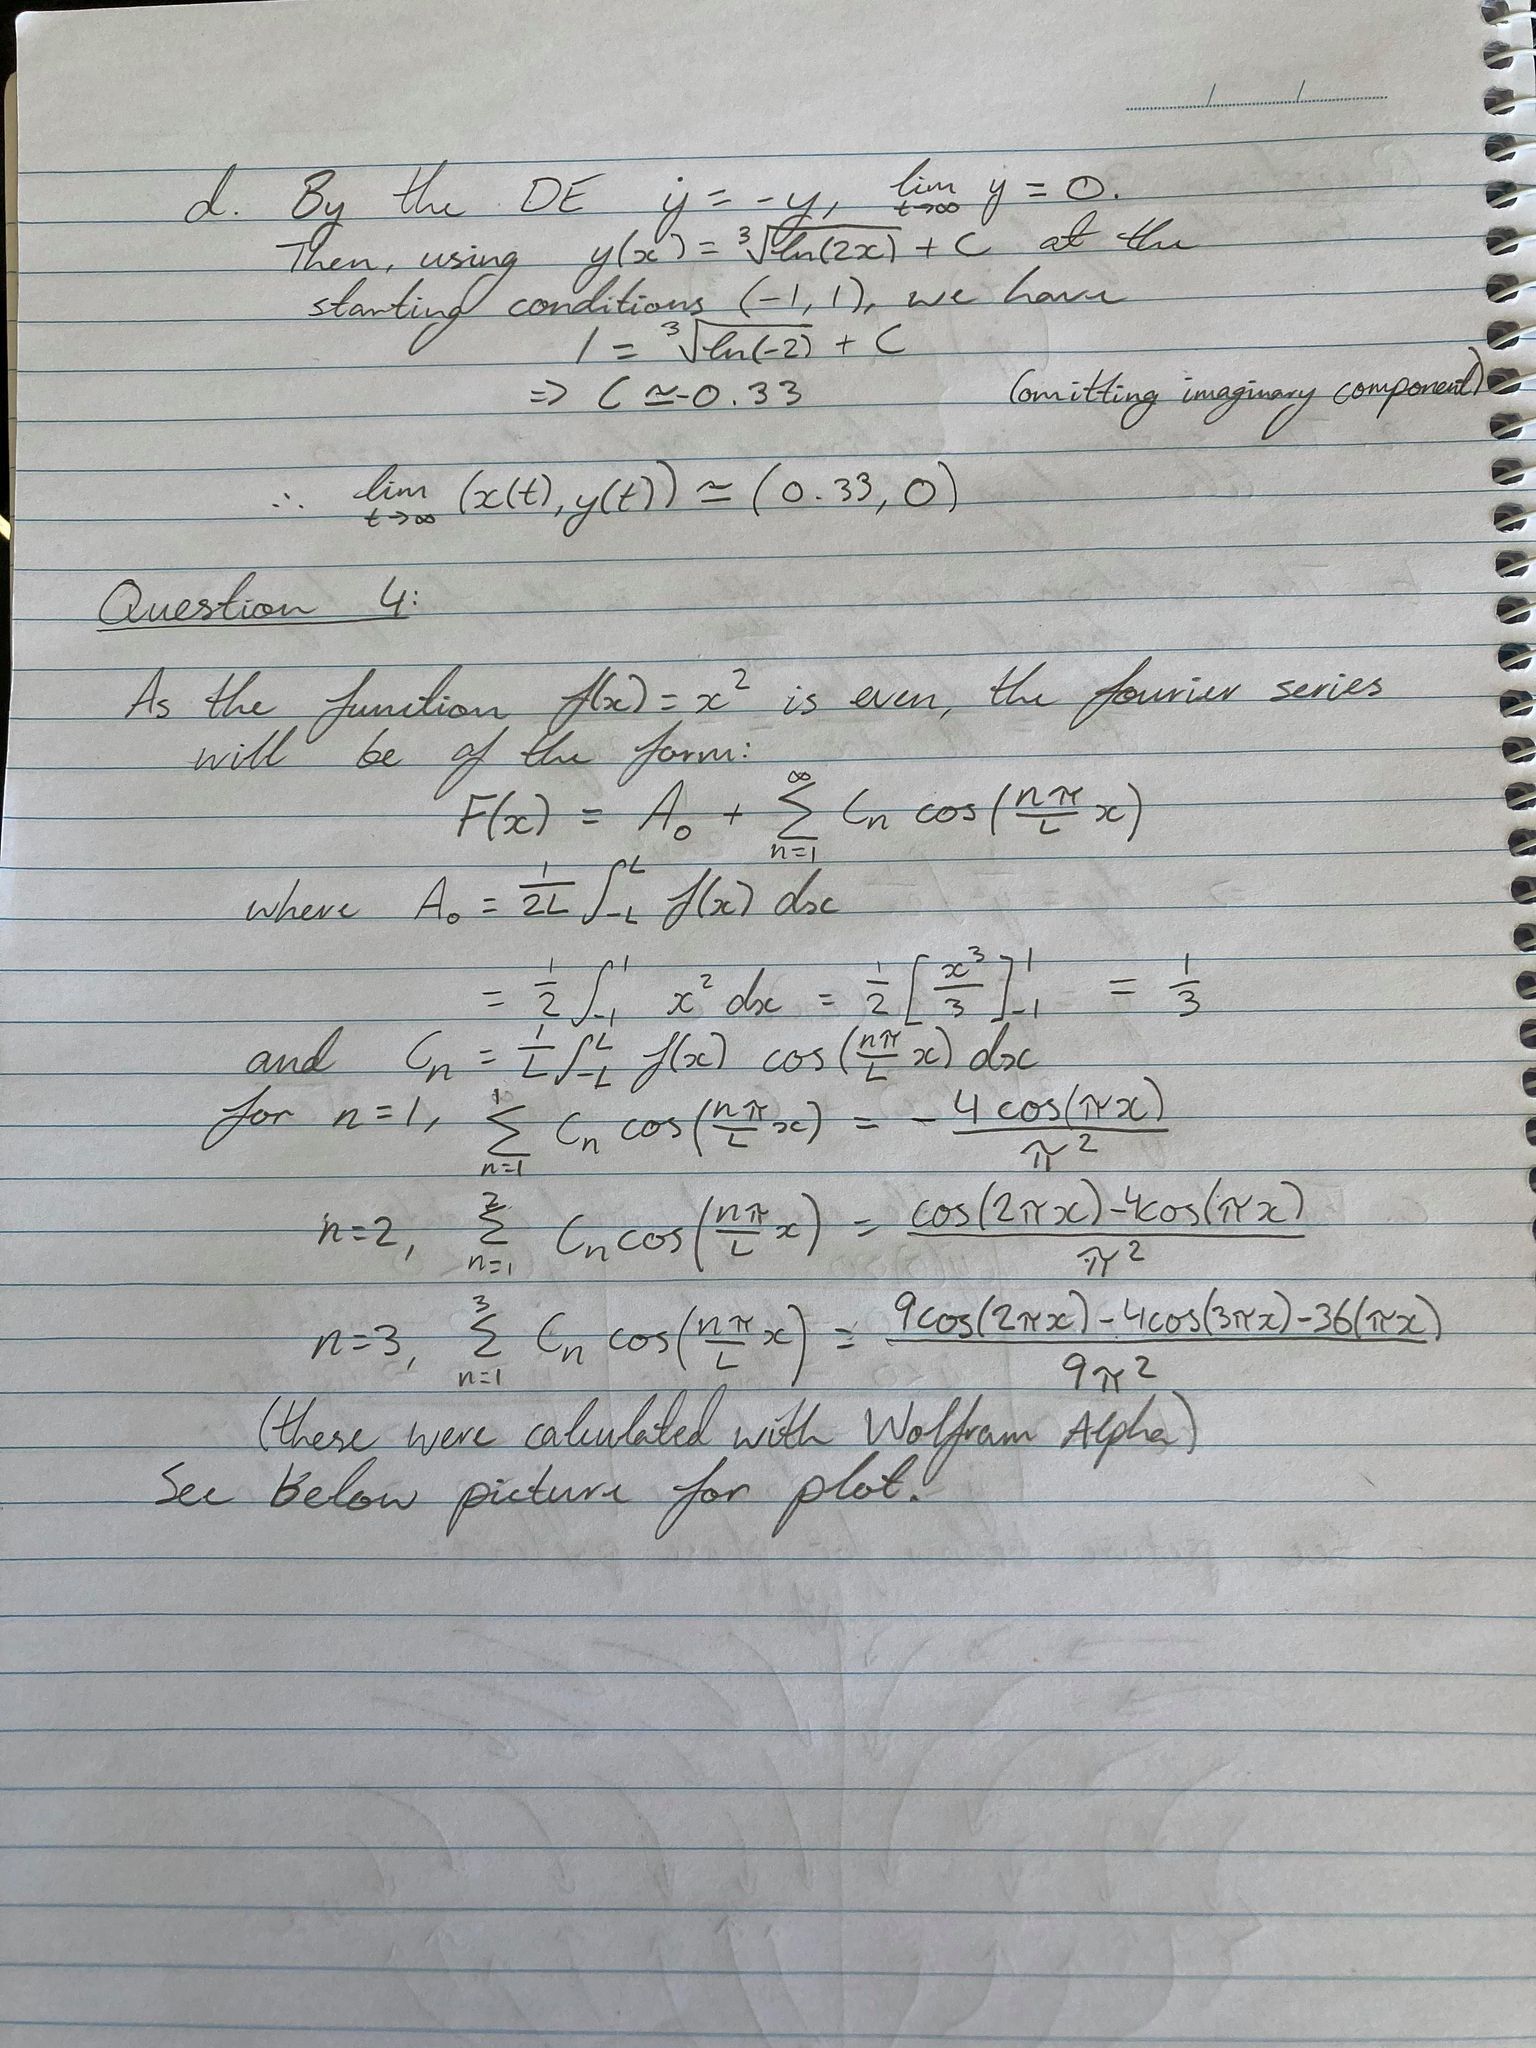 d. By the DE ẏ = -y, lim t→∞ y = 0.
Then, using y(x) = ∛ln(2x) + C at the
starting conditions (-1, 1), we have
1 = ∛ln(-2) + C
⇒ C ≃ -0.33 (omitting imaginary component)
∴ lim t→∞ (x(t), y(t)) ≃ (0.33, 0)
Question 4:
As the function f(x) = x² is even, the fourier series
will be of the form:
F(x) = A₀ + ∑_{n=1}^{∞} Cn cos(nπ/L x)
where A₀ = 1/2L ∫_{-L}^{L} f(x) dx
= 1/2 ∫_{-1}^{1} x² dx = 1/2 [x³/3]_{-1}^{1} = 1/3
and Cn = 1/L ∫_{-L}^{L} f(x) cos(nπ/L x) dx
for n=1, ∑_{n=1}^{1} Cn cos(nπ/L x) = - 4cos(πx)/π²
n=2, ∑_{n=1}^{2} Cn cos(nπ/L x) = (cos(2πx) - 4cos(πx))/π²
n=3, ∑_{n=1}^{3} Cn cos(nπ/L x) = (9cos(2πx) - 4cos(3πx) - 36(πx))/9π²
(these were calculated with Wolfram Alpha)
See below picture for plot.